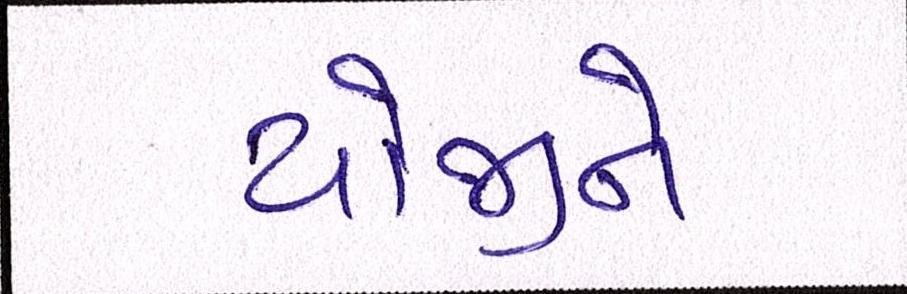 યોજીને